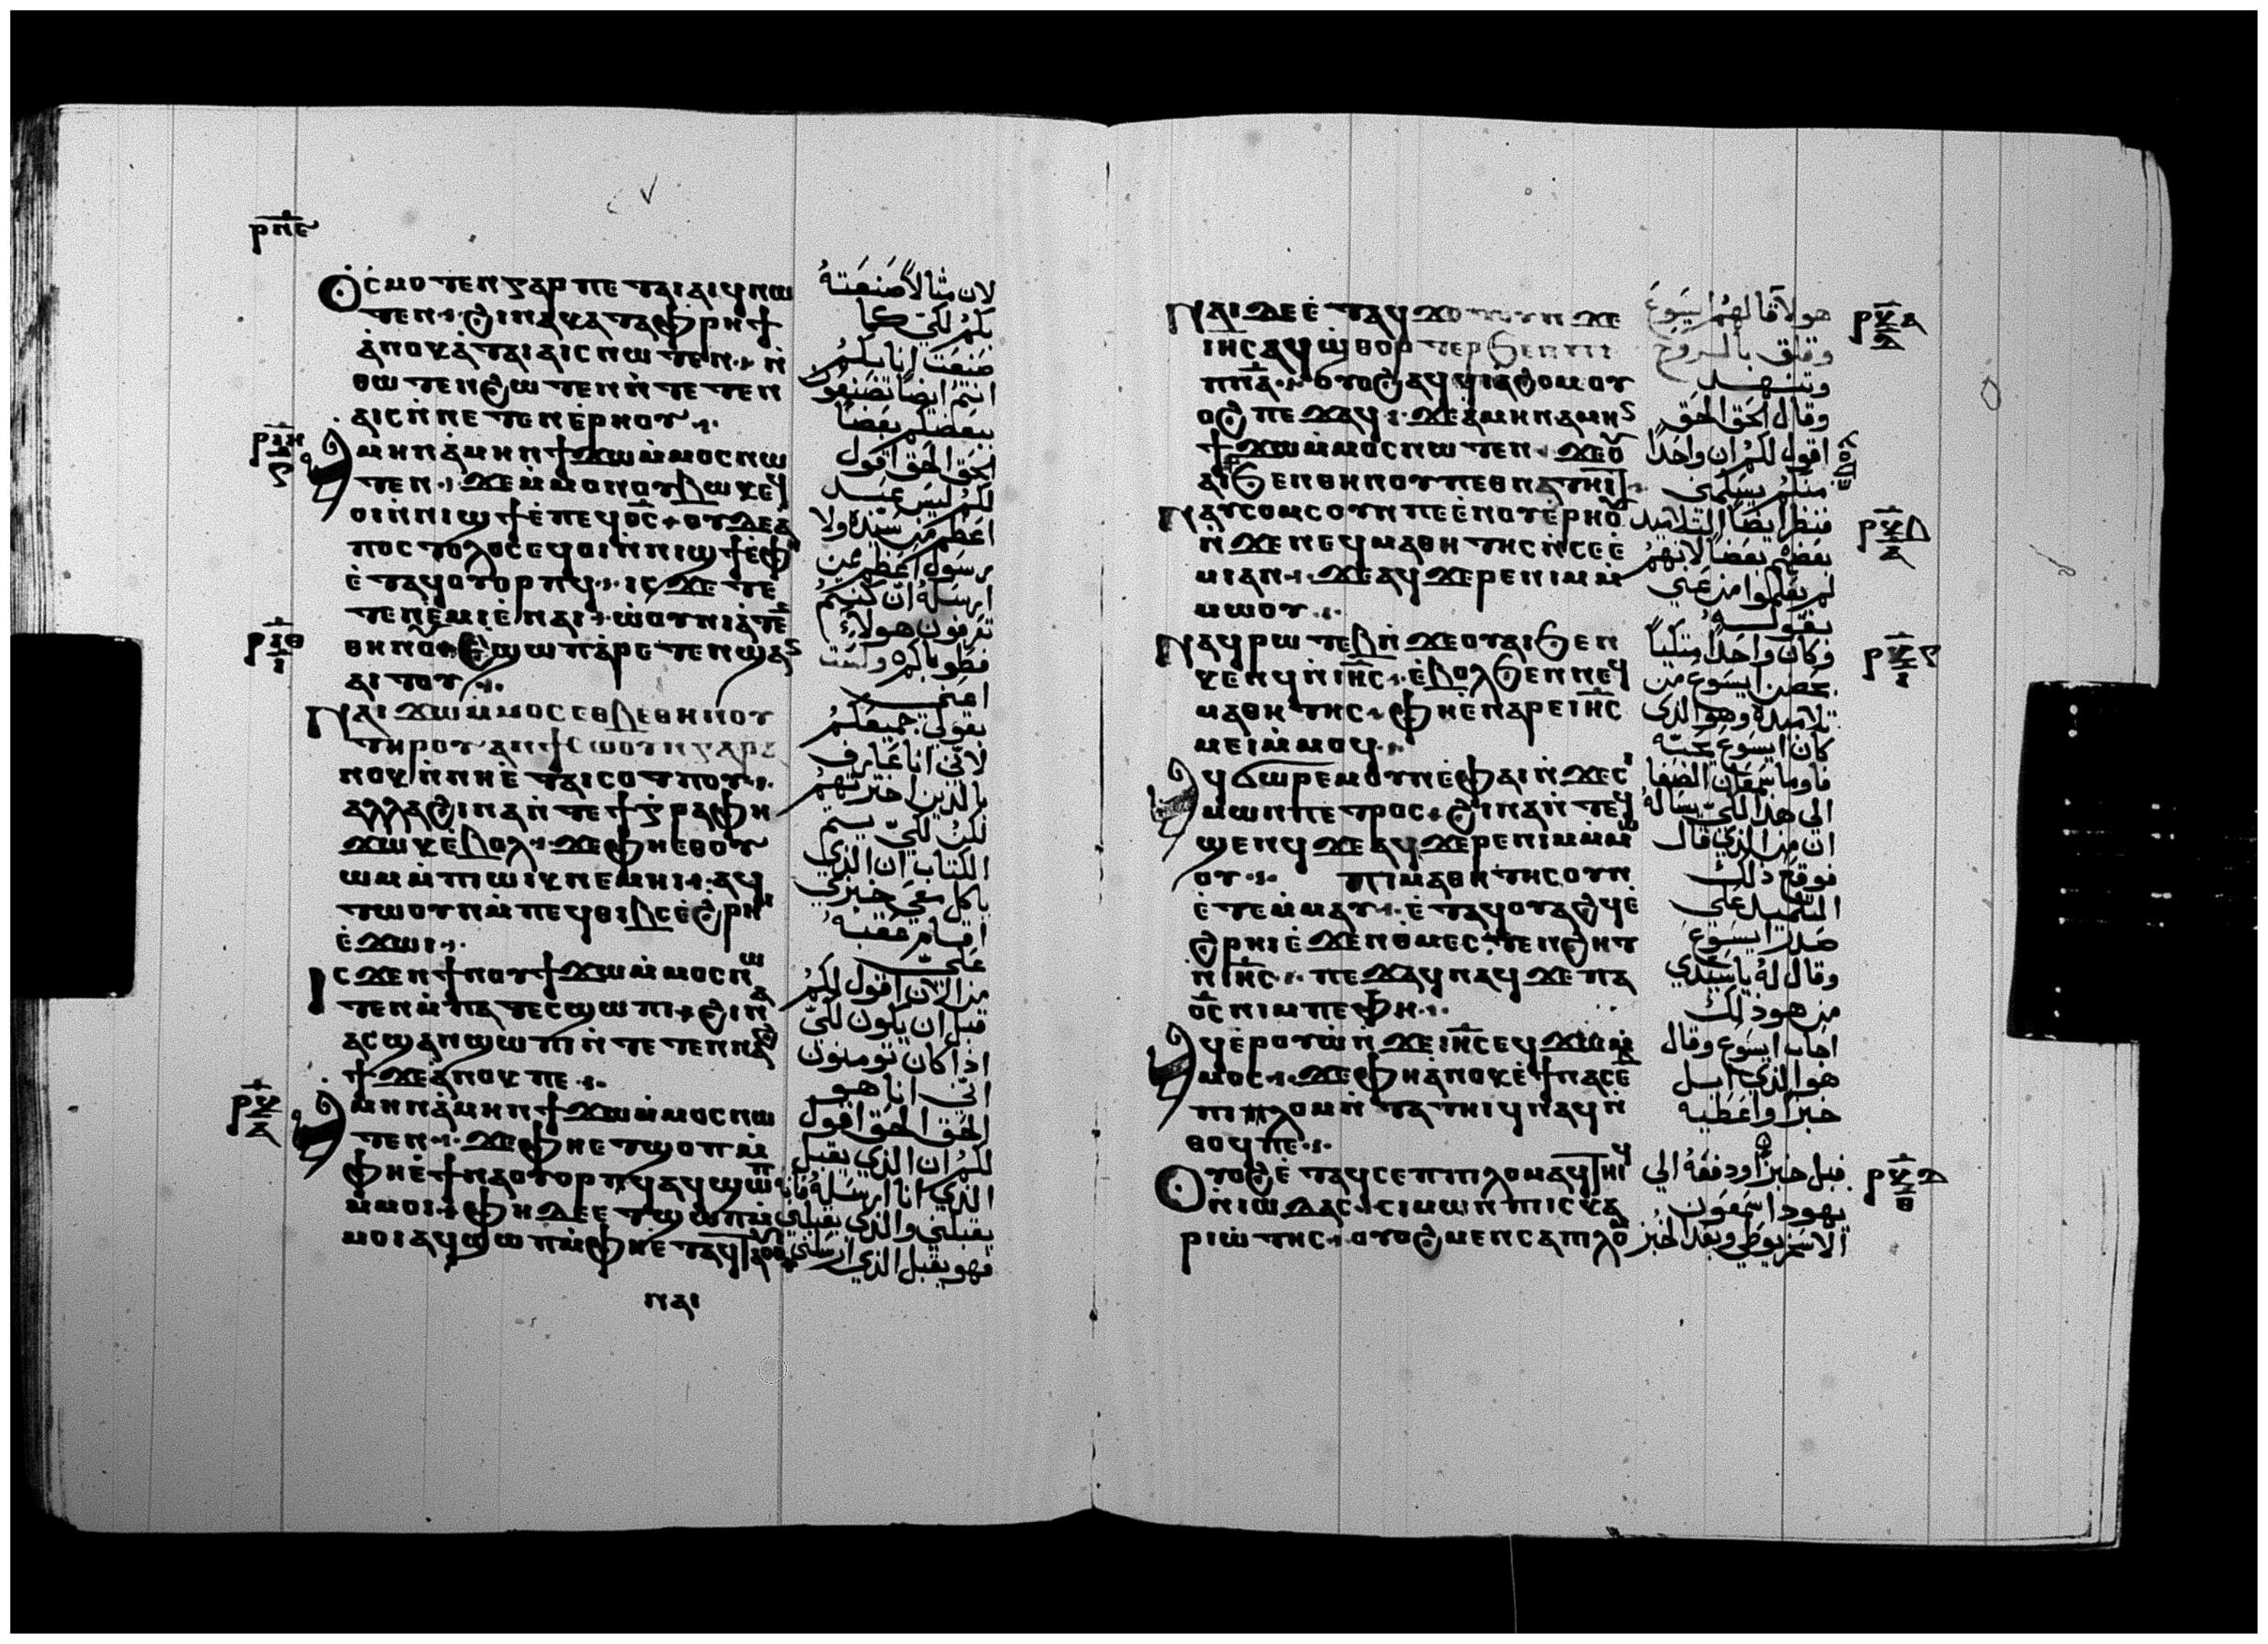 ⲣⲡⲉ
ⲟⲩⲥⲙⲟⲧ ⲉⲛ ⲅⲁⲣ ⲡⲉ ⲧⲁⲓⲁⲓϥ ⲛⲱ
ⲧⲉⲛ ϩⲓⲛⲁ ⲕⲁⲧⲁ ⲫⲣⲏϯ
ⲁⲛⲟⲕ ⲉⲧⲁⲓⲁⲓⲥ ⲛⲱⲧⲉⲛ ⲛ̀
ⲑⲱⲧⲉⲛ ϩⲱⲧⲉⲛ ⲛ̀ⲧⲉⲧⲉⲛ
ⲁⲓⲥ ⲛ̀ⲛⲉⲧⲉⲛⲉⲣⲏⲟⲩ
ⲁⲙⲏⲛ ⲁⲙⲏⲛ ϯϫⲱ ⲙ̀ⲙⲟⲥ ⲛⲱ
ⲧⲉⲛ ϫⲉ ⲙ̀ⲙⲟⲛ ⲟⲩⲃⲱⲕ ⲉϥ
ⲟⲓ ⲛ̀ⲛⲓϣϯ ⲉ̀ⲡⲉϥⲟ̅ⲥ̅ ⲟⲩⲇⲉ ⲁ
ⲡⲟⲥⲧⲟⲗⲟⲥ ⲉϥⲟⲓ ⲛ̀ⲛⲓϣϯ ⲉ̀ⲫⲏ
ⲉ̀ⲧⲁϥⲟⲩⲟⲣⲡϥ ⲓⲥϫⲉ ⲧⲉ
ⲧⲉⲛⲉ̀ⲙⲓ ⲉ̀ⲛⲁⲓ ⲱ̀ⲟⲩⲛⲓⲁⲧⲉ
ⲑⲏⲛⲟⲩ ⲉ̀ϣⲱⲡ ⲁⲣⲉⲧⲉⲛϣⲁⲛ
ⲁⲓⲧⲟⲩ
ⲛⲁⲓϫⲱ ⲙ̀ⲙⲟⲥ ⲉⲑⲃⲉ ⲑⲏⲛⲟⲩ
ⲧⲏⲣⲟⲩ ⲁⲛ ϯⲥⲱⲟⲩⲛ ⲅⲁⲣ ⲁ
ⲛⲟⲕ ⲛ̀ⲛⲏ ⲉ̀ⲧⲁⲓⲥⲟⲧⲡⲟⲩ
ⲁⲗⲗⲁ ϩⲓⲛⲁ ⲛ̀ⲧⲉ ϯⲅⲣⲁⲫⲏ
ϫⲱⲕ ⲉ̀ⲃⲟⲗ ϫⲉ ⲫⲏ ⲉⲑⲟⲩ
ⲱⲙ ⲙ̀ⲡⲱⲓⲕ ⲛⲉⲙⲏⲓ ⲁϥ
ⲧⲱⲟⲩⲛ ⲙ̀ⲡⲉϥⲑⲓⲃⲥ ⲉ̀ϩⲣⲏⲓ
ⲉ̀ϫⲱⲓ
ⲓⲥϫⲉⲛ ϯⲛⲟⲩ ϯϫⲱ ⲙ̀ⲙⲟⲥ ⲛⲱ
ⲧⲉⲛ ⲙ̀ⲡⲁⲧⲉⲥϣⲱⲡⲓ ϩⲓⲛⲁ
ⲁⲥϣⲁⲛϣⲱⲡⲓ ⲛ̀ⲧⲉⲧⲉⲛⲛⲁϩ
ϯ ϫⲉ ⲁⲛⲟⲕ ⲡⲉ
ⲁⲙⲏⲛ ⲁⲙⲏⲛ ϯϫⲱ ⲙ̀ⲙⲟⲥ ⲛⲱ
ⲧⲉⲛ ϫⲉ ⲫⲏ ⲉⲧϣⲱⲡ ⲙ̀
ⲫⲏ ⲉ̀ϯⲛⲁⲟⲩⲟⲣⲡϥ ⲁϥϣⲱⲡ
ⲙ̀ⲙⲟⲓ ⲫⲏ ⲇⲉ ⲉⲧϣⲱⲡ ⲙ̀
ⲙⲟⲓ ⲁϥϣⲱⲡ ⲙ̀ⲫⲏ ⲉⲧⲁϥⲧⲁⲟⲩⲟⲓ
ⲛⲁⲓ
لان مثالا صنعته
بكم لكى كما
صنعت انا بكم
انتم ايضا تصنعون
ببعضكم بعضا
الحق الحق اقول
لكم ليس عبد
اعظم من سيده ولا
رسول اعظم ممن
ارسله ان كنتم
تعرفون هولاء
فطوباكم ولست
اعنى
بقولى جميعكم
لانى انا عارف
بالذين اخترتهم
لكن لكى يتم
الكتاب ان الذي
ياكل معى خبزي
اقام عقبه
على
من الان اقول لكم
قبل ان يكون لكى
اذا كان تومنون
انى انا هو
الحق الحق اقول
لكم ان الذي يقبل
الذي انا ارسله فانه
يقبلنى والذي يقبلنى
فهو يقبل الذي ارسلنى
ⲛⲁⲓ ⲇⲉ ⲉ̀ⲧⲁϥϫⲟⲧⲟⲩ ⲛ̀ϫⲉ
ⲓⲏ̅ⲥ̅ ⲁϥϣⲑⲟⲣⲧⲉⲣ ϧⲉⲛ ⲡⲓ
ⲡⲛ̅ⲁ̅ ⲟⲩⲟϩ ⲁϥϥⲓⲁϩⲟⲙ ⲟⲩ
ⲟϩ ⲡⲉϫⲁϥ ϫⲉ ⲁⲙⲏⲛ ⲁⲙⲏⲛ
ϯϫⲱ ⲙ̀ⲙⲟⲥ ⲛⲱⲧⲉⲛ ϫⲉ ⲟⲩ
ⲁⲓ ϧⲉⲛ ⲑⲏⲛⲟⲩ ⲡⲉⲑⲛⲁⲧⲏⲓⲧ
ⲛⲁⲩⲥⲟⲙⲥ ⲟⲩⲛ ⲡⲉ ⲉ̀ⲛⲟⲩⲉⲣⲏⲟⲩ
ⲛ̀ϫⲉ ⲛⲉϥⲙⲁⲑⲏⲧⲏⲥ ⲛ̀ⲥⲉⲉ̀
ⲙⲓ ⲁⲛ ϫⲉ ⲁϥϫⲉⲣⲉ ⲛⲓⲙ ⲙ̀
ⲙⲱⲟⲩ
ⲛⲁϥⲣⲱⲧⲉⲃ ⲛ̀ϫⲉ ⲟⲩⲁⲓ ϧⲉⲛ
ⲕⲉⲛϥ ⲛ̀ⲓⲏ̅ⲥ̅ ⲉ̀ⲃⲟⲗ ϧⲉⲛ ⲛⲉϥ
ⲙⲁⲑⲏⲧⲏⲥ ⲫⲏ ⲉ̀ⲛⲁⲣⲉ ⲓⲏ̅ⲥ̅
ⲙⲉⲓ ⲙ̀ⲙⲟϥ
ⲁϥϭⲱⲣⲉⲙ ⲟⲩⲛ ⲉ̀ⲫⲁⲓ ⲛ̀ϫⲉ ⲥⲓ
ⲙⲱⲛ ⲡⲉⲧⲣⲟⲥ ϩⲓⲛⲁ ⲛ̀ⲧⲉϥ
ϣⲉⲛϥ ϫⲉ ⲁϥϫⲉⲣⲉ ⲛⲓⲙ ⲙ̀ⲙⲱ
ⲟⲩ ⲡⲓⲙⲁⲑⲏⲧⲏⲥ ⲟⲩⲛ
ⲉ̀ⲧⲉⲙⲙⲁⲩ ⲉ̀ⲧⲁϥⲟⲩⲁϩϥ ⲉ̀
ϩⲣⲏⲓ ⲉ̀ϫⲉⲛ ⲑⲙⲉⲥⲧⲉⲛϩⲏⲧ
ⲛ̀ⲓⲏ̅ⲥ̅ ⲡⲉϫⲁϥ ⲛⲁϥ ϫⲉ ⲡⲁ
ⲟ̅ⲥ̅ ⲛⲓⲙ ⲡⲉ ⲫⲏ
ⲁϥⲉ̀ⲣⲟⲩⲱ ⲛ̀ϫⲉ ⲓⲏ̅ⲥ̅ ⲉϥϫⲱ ⲙ̀
ⲙⲟⲥ ϫⲉ ⲫⲏ ⲁⲛⲟⲕ ⲉ̀ϯⲛⲁⲥⲉⲡ
ⲡⲓⲗⲱⲙ ⲛ̀ⲧⲁⲧⲏⲓϥ ⲛⲁϥ ⲛ̀
ⲑⲟϥ ⲡⲉ
ⲟⲩⲟϩ ⲉ̀ⲧⲁϥⲥⲉⲡ ⲡⲓⲗⲱⲙ ⲁϥⲧⲏⲓϥ
ⲛ̀ⲓⲟⲩⲇⲁⲥ ⲥⲓⲙⲱⲛ ⲡⲓⲥⲕⲁ
ⲣⲓⲱⲧⲏⲥ ⲟⲩⲟϩ ⲙⲉⲛⲉⲛⲥⲁ ⲡⲓⲗⲱ
هولا قالهم ايسوع
وقلق بالروح
وتنهد
وقال الحق الحق
اقول لكم ان واحدا
منكم يسلمنى
فنظر ايضا التلاميد
بعضهم بعضا لانهم
لم يعلموا من عنى
بقوله
وكان واحدا متكيا
بحضن ايسوع من
تلاميده وهو الذى
كان ايسوع يحبه
فاوما سمعان الصفا
الى هدا لكى يساله
ان من الذي قال
فوقع ذلك
التلميد على
صدر ايسوع
وقال له يا سيدي
من هو ذلك
اجاب ايسوع وقال
هو الذي ابل
خبزا واعطيه
فبل خبزا ودفعه الى
يهودا سمعون
الاسخريوطي وبعد الخبز